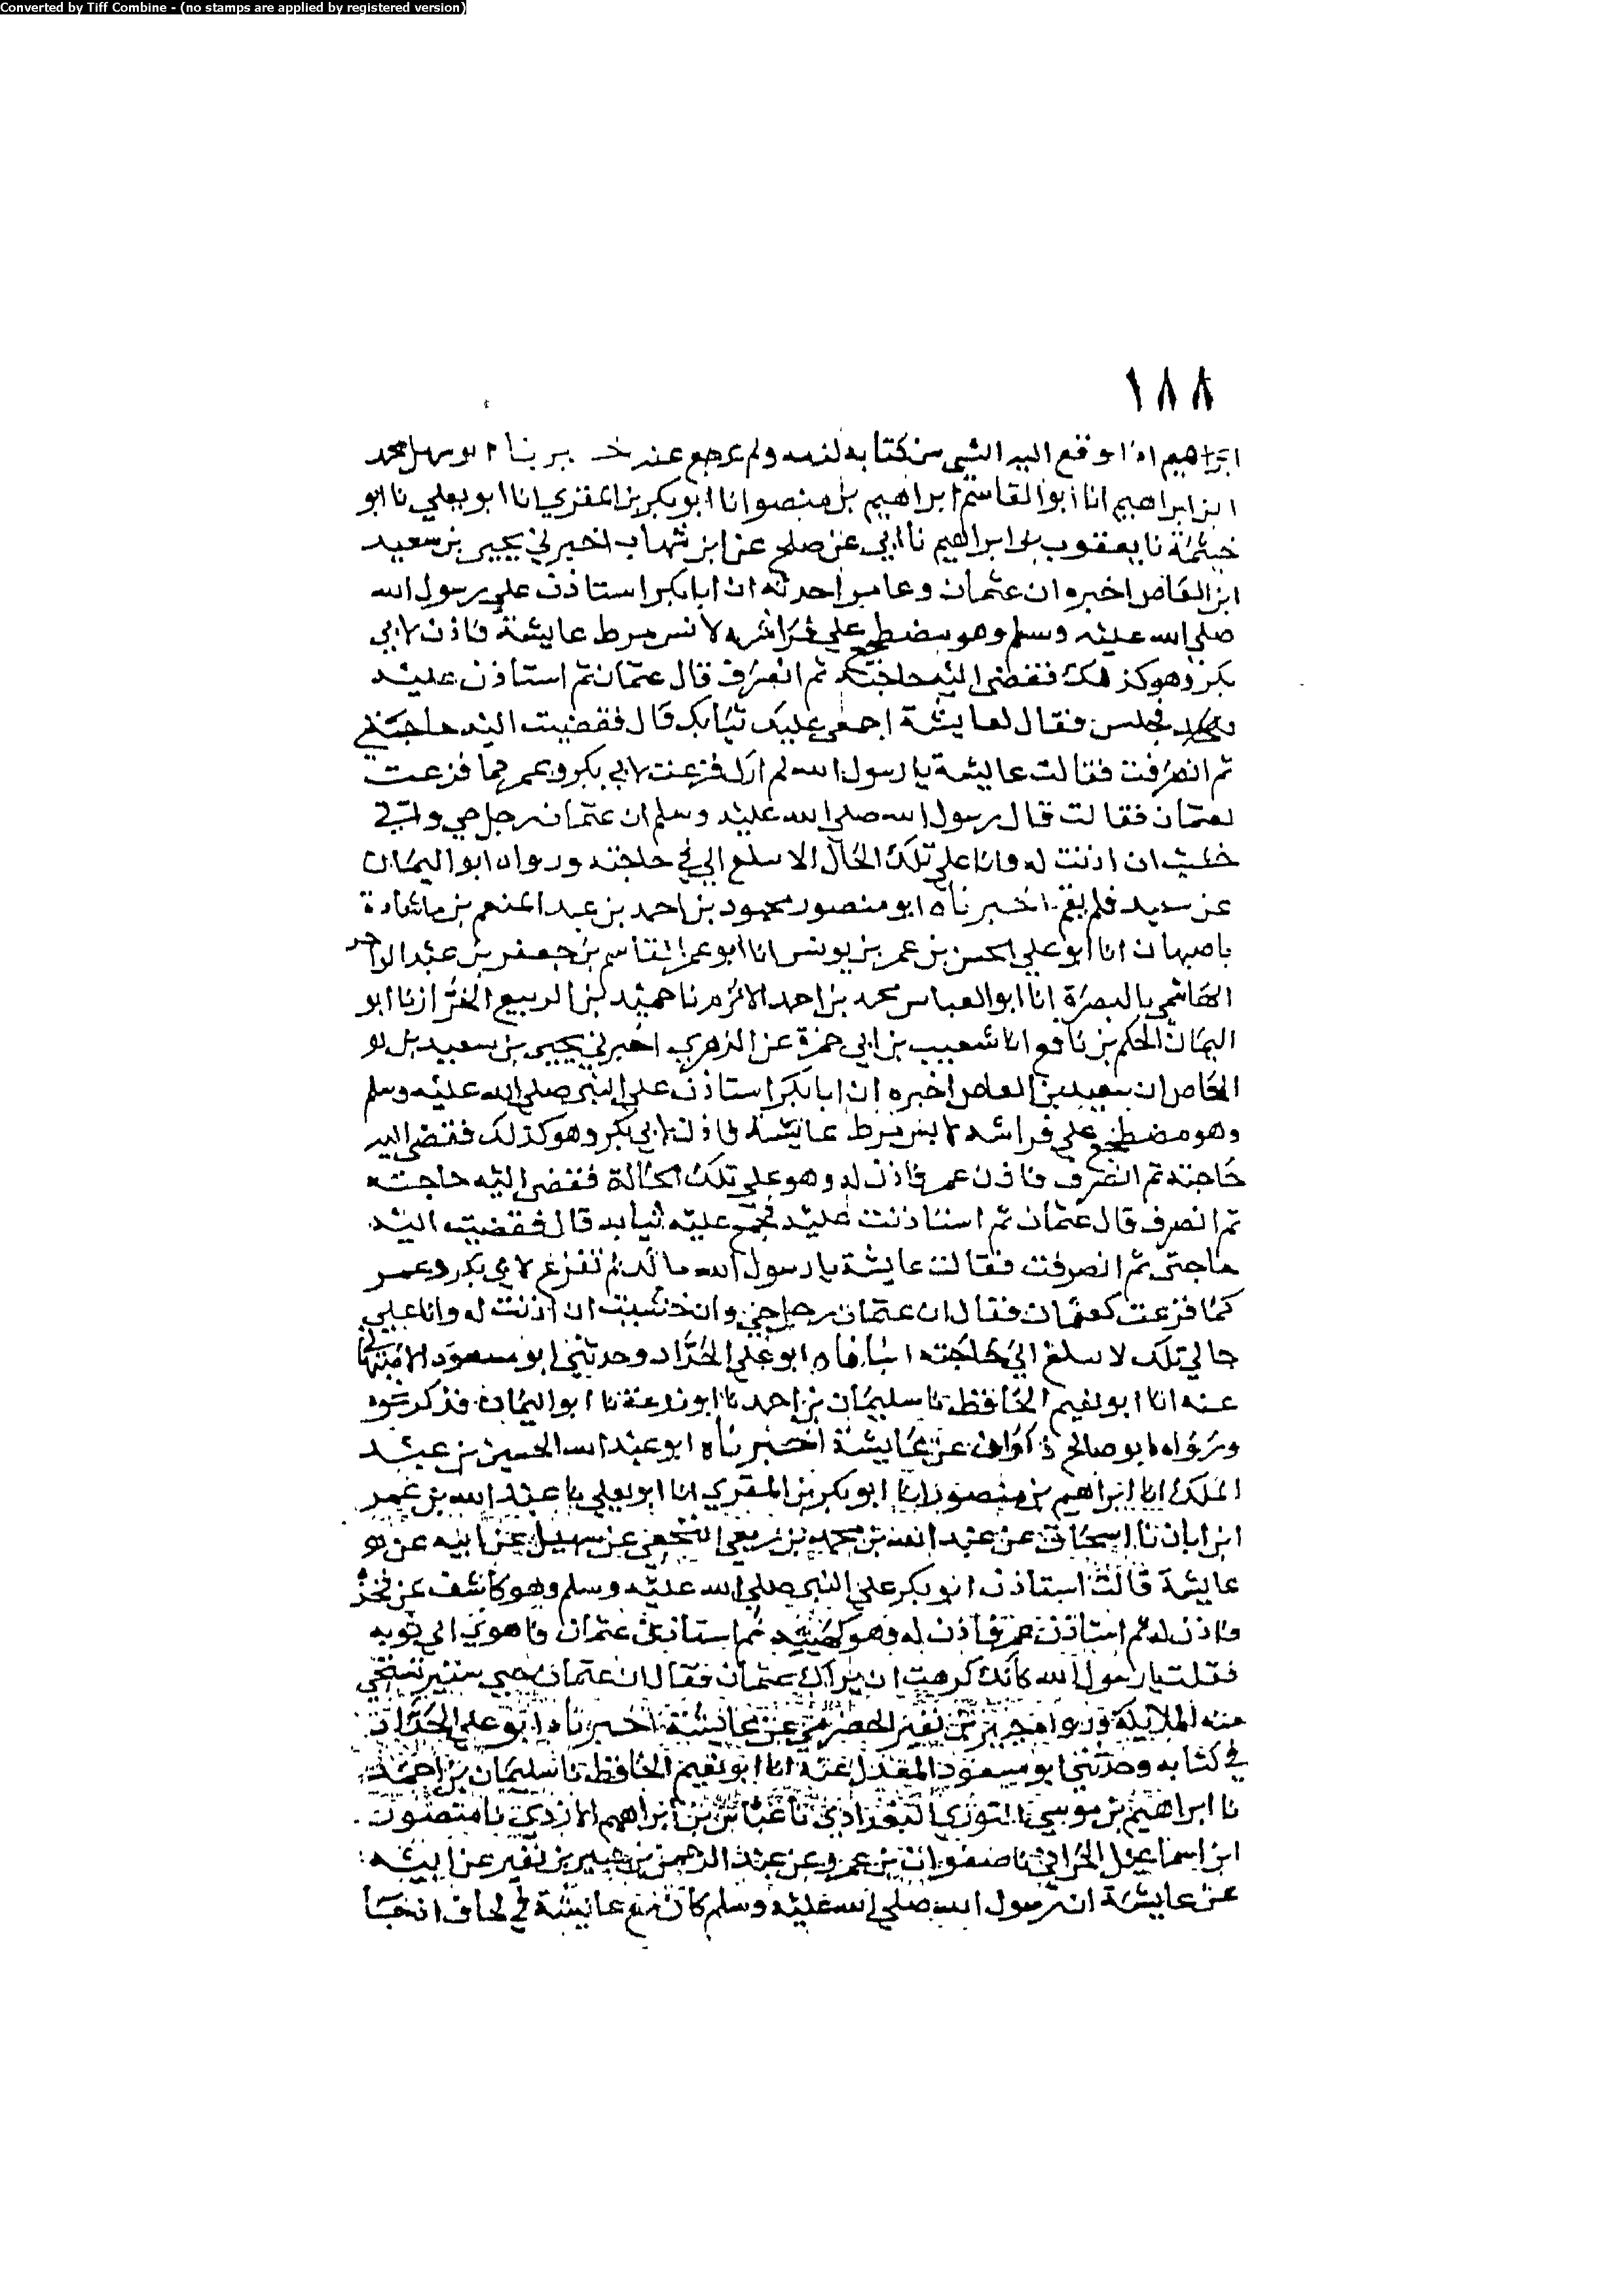 Converted by Tiff Combine - (no stamps are applied by registered version)
١٨٨
ابراهيم اذا وقع اليه الشي من كتابه لزمه ولم يرجع عنه خــبرنا ابو سهل محمد
ابن ابراهيم انا ابو القاسم ابراهيم بن منصو انا ابو بكر بن المقري انا ابو يعلي نا ابو
خيثمة نا يعقوب بن ابراهيم نا ابي عن صلح عن ابن شهاب اخبرني يحيى بن سعيد
ابن العاص اخبره ان عثمان وعايشة حدثه ان ابا بكر استاذن علي رسول الله
صلى الله عليه وسلم وهو مضطجع علي فراشه لابس مرط عايشة فاذن لابي
بكر وهو كذلك فقضى اليه حاجته ثم انصرف قال عثمان ثم استاذن عليه
فجلس فقال لعايشة اجمعي عليك ثيابك قال فقضيت اليه حاجتي
ثم انصرفت فقالت عايشة يا رسول الله لم ارك فزعت لابي بكر وعمر كما فزعت
لعثمان فقالت قال رسول الله صلى الله عليه وسلم ان عثمان رجل حي واني
خشيت ان اذنت له وانا علي تلك الحال الا يبلغ الي في حاجته ورواه ابو اليمان
عن سعيد فلم يقم اخبرناه ابو منصور محمود بن احمد بن عبد المنعم بن ماشادة
باصبهان انا ابو علي الحسن بن عمر بن يونس انا ابو عمر القاسم بن جعفر بن عبد الواحد
الهاشمي بالبصرة انا ابو العباس محمد بن احمد الاثرم نا حميد بن الربيع الخزاز نا ابو
اليمان الحكم بن نافع انا شعيب بن ابي حمزة عن الزهري اخبرني يحيى بن سعيد بن
العاص ان سعيد بن العاص اخبره ان ابا بكر استاذن على النبي صلى الله عليه وسلم
وهو مضطجع علي فراشه لابس مرط عايشة فاذن لابي بكر وهو كذلك فقضى اليه
حاجته ثم انصرف فاذن عمر فاذن له وهو علي تلك الحالة فقضى اليه حاجته
ثم انصرف قال عثمان ثم استاذنت عليه فجمع عليه ثيابه قال فقضيت اليه
حاجتي ثم انصرفت فقالت عايشة يا رسول الله مالك لم تفزع لابي بكر وعمر
كما فزعت لعثمان فقال ان عثمان رجل حي وان خشيت ان اذنت له وانا علي
حالي تلك لا يبلغ الي حاجته انبافاه ابو علي الحداد وحدثني ابو مسعود الاصبهاني
عنه انا ابو نعيم الحافظ نا سليمان بن احمد نا ابو زرعة نا ابو اليمان فذكر نحوه
ورواه ابو صالح ذكوان عن عايشة اخبرناه ابو عبد الله الحسين بن عبد
الملك انا ابراهيم بن منصور انا ابو بكر بن المقري انا ابو يعلي نا عبد الله بن عمر
ابن ابان نا اسحاق عن عبد الله بن محمد بن ربعي النخعي عن سهيل عن ابيه عن
عايشة قالت استاذن ابو بكر علي النبي صلى الله عليه وسلم وهو كاشف عن فخذه
فاذن له ثم استاذن عمر فاذن له وهو كهيئته ثم استاذن عثمان فاهوى الى ثوبه
فقلت يا رسول الله كانك كرهت ان يراك عثمان فقال ان عثمان حيي ستير تستحي
منه الملايكة ورواه جبير بن نفير الحضرمي عن عايشة اخبرناه ابو علي الحداد
في كتابه وحدثني ابو مسعود المعدل عنه انا ابو نعيم الحافظ نا سليمان بن احمد
نا ابراهيم بن موسى التوزي البغدادي نا عباس بن ابراهيم الازدي نا منصور
ابن اسماعيل الحراني نا صفوان بن عمرو عن عبد الرحمن بن جبير بن نفير عن ابيه
عن عايشة ان رسول الله صلى الله عليه وسلم كان مع عايشة في لحاف